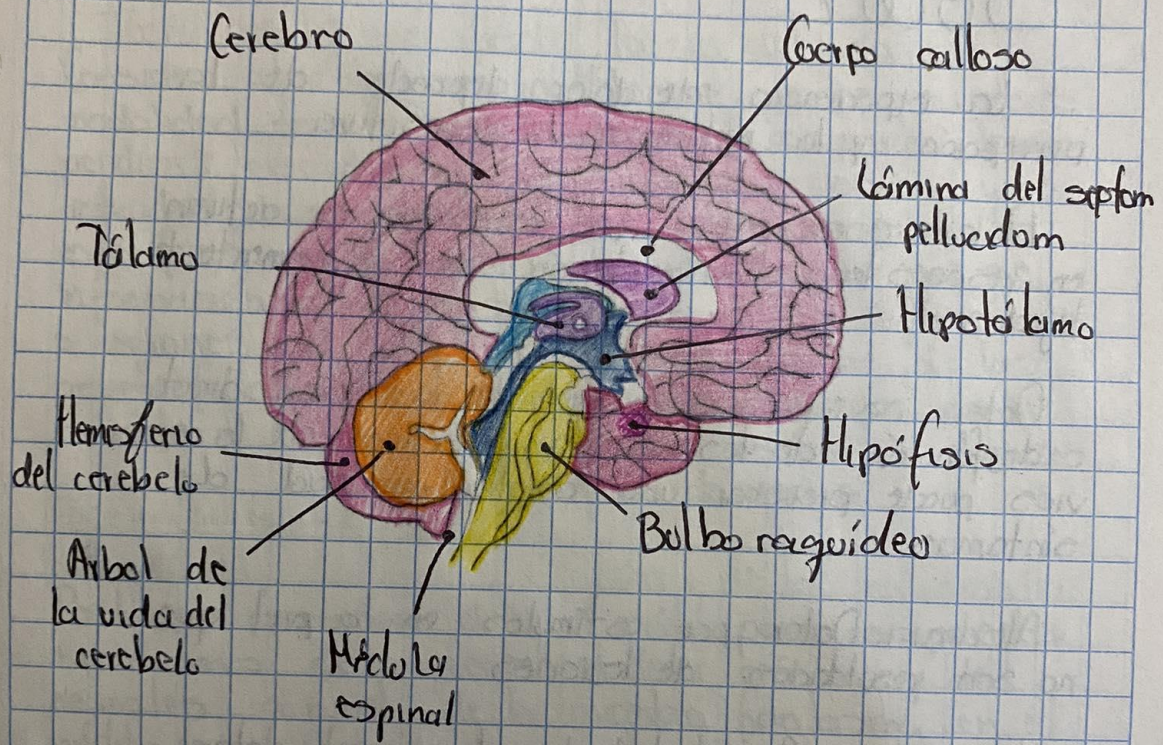 Cerebro
Cuerpo calloso
Lámina del septum
pellucidum
Tálamo
Hipotálamo
Hemisferio
del cerebelo
Hipófisis
Bulbo raquídeo
Arbol de
la vida del
cerebelo
Médula
espinal